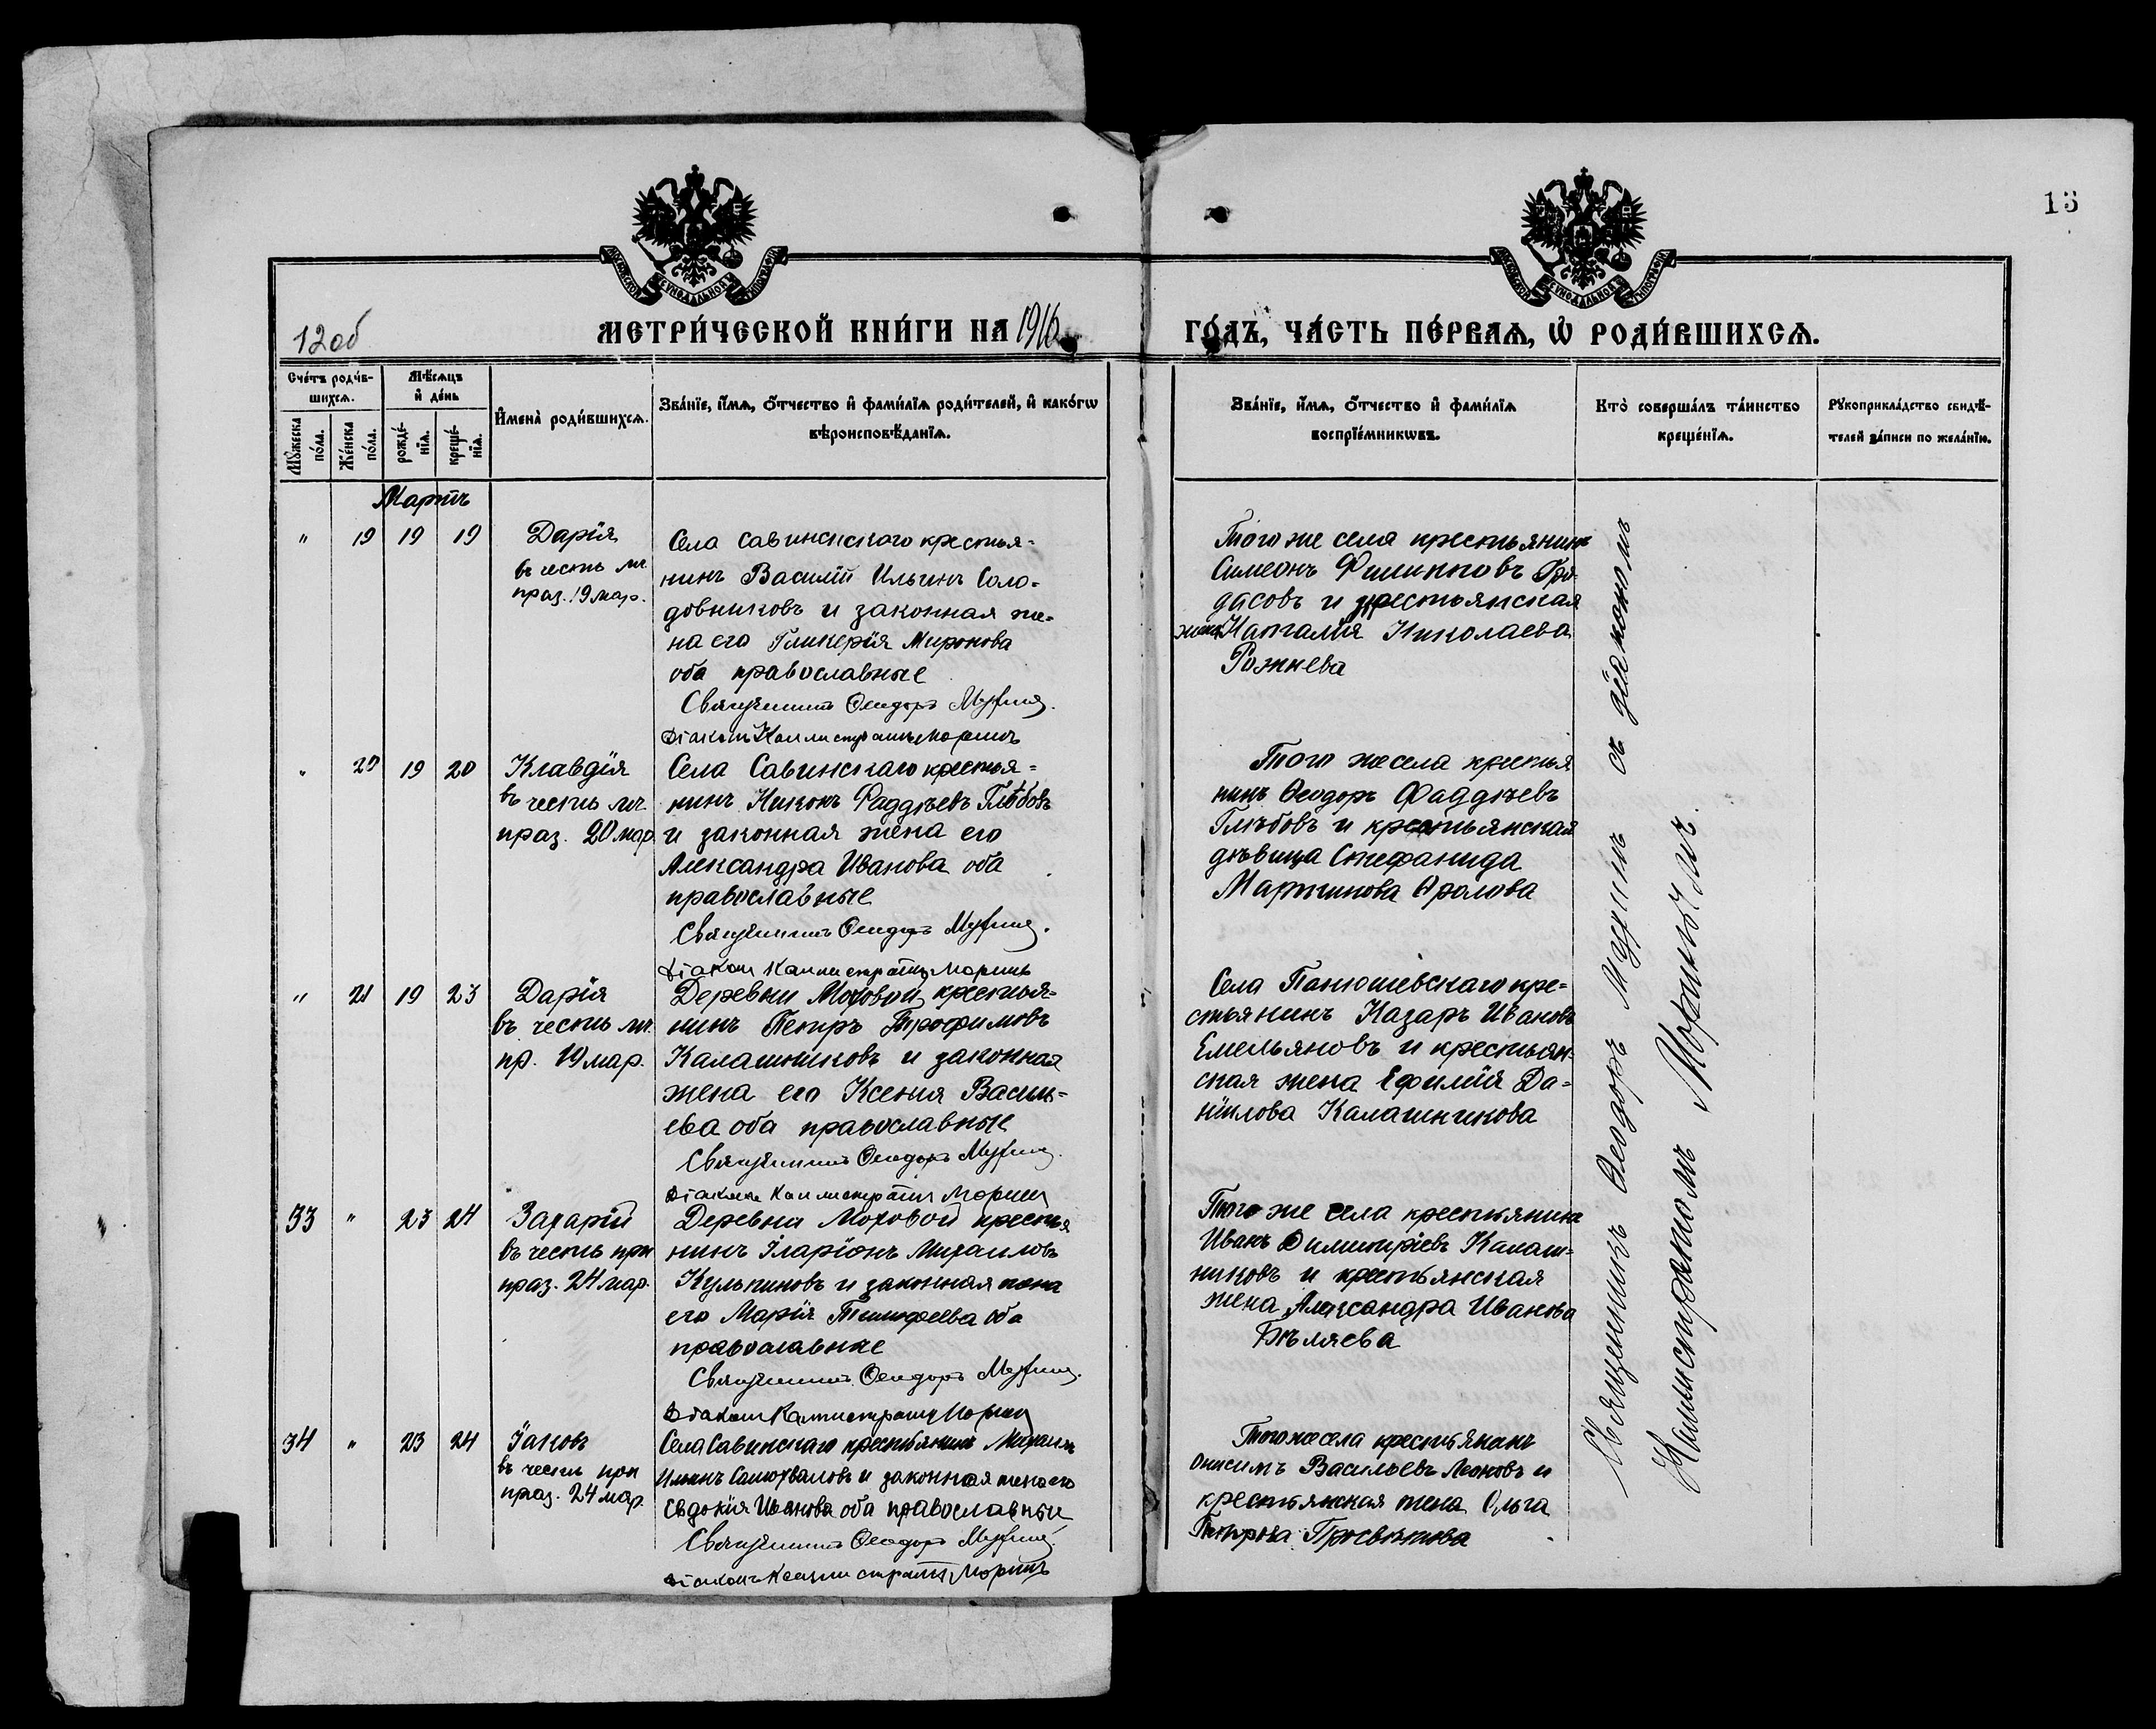 13
МОСКОВСКОЙ СѴНОДАЛЬНОЙ ТИПОГРАФІИ
МОСКОВСКОЙ СѴНОДАЛЬНОЙ ТИПОГРАФІИ
12об
МЕТРИ́ЧЕСКОЙ КНИ́ГИ НА 1916
ГО́ДЪ, ЧА́СТЬ ПЕ́РВАѦ, Ѡ҆ РОДИ́ВШИХСѦ.
Сче́тъ роди́в-
шихсѧ.
Мꙋ́жеска по́ла.
Же́нска по́ла.
Мѣ́сѧцъ
и҆ де́нь
рожде́-
нїѧ.
креще́-
нїѧ.
И҆мена̀ роди́вшихсѧ.
Зва́нїе, и҆́мѧ, ѻ҆́тчество и҆ фами́лїѧ роди́телей, и҆ како́гѡ
вѣроисповѣ́данїѧ.
Зва́нїе, и҆́мѧ, ѻ҆́тчество и҆ фами́лїѧ
воспрїе́мникѡвъ.
Кто̀ соверша́лъ та́инство
креще́нїѧ.
Рꙋкоприкла́дство свидѣ́-
телей за́писи по жела́нїю.
Мартъ
" 19 19 19
Дарія
въ честь мч.
праз. 19 мар.
Села Савинскаго крестья-
нинъ Василій Ильинъ Соло-
довниковъ и законная же-
на его Гликерія Миронова
оба православные
Священникъ Ѳеодоръ Мухинъ.
Діаконъ Каллистратъ Моринъ
Того же села крестьянинъ
Симеонъ Филипповъ
дасовъ и крестьянская
жена Наталія Николаева
Рожнева
" 20 19 20
Клавдія
въ честь мч.
праз. 20 мар.
Села Савинскаго крестья-
нинъ Никонъ Фаддѣевъ Глѣбовъ
и законная жена его
Александра Иванова оба
православные
Священникъ Ѳеодоръ Мухинъ.
Діаконъ Каллистратъ Моринъ
Того же села крестья
нинъ Ѳеодоръ Фаддѣевъ
Глѣбовъ и крестьянская
дѣвица Стефанида
Мартинова Фролова
" 21 19 23
Дарія
въ честь мч.
пр. 19 мар.
Деревни Моховой крестья-
нинъ Петръ Трофимовъ
Калашниковъ и законная
жена его Ксения Василь-
ева оба православные
Священникъ Ѳеодоръ Мухинъ.
Діаконъ Каллистратъ Моринъ
Села Панюшевскаго кре-
стьянинъ Назаръ Ивановъ
Емельяновъ и крестьян-
ская жена Ефилія Да-
нілова Калашникова
33 " 23 24
Захарій
въ честь прп
праз. 24 мар.
Деревни Моховой крестья
нинъ Іларіонъ Михаиловъ
Кульпиновъ и законная жена
его Марія Тимофеева оба
православные
Священникъ Ѳеодоръ Мухинъ.
Діаконъ Каллистратъ Моринъ
Того же села крестьянинъ
Иванъ Димитріевъ Калаш-
никовъ и крестьянская
жена Александра Иванова
Бѣляева
34 " 23 24
Іаковъ
въ честь прп
праз. 24 мар.
Села Савинскаго крестьянинъ Михаилъ
Ильинъ Самохваловъ и законная жена его
Евдокія Иванова оба православные
Священникъ Ѳеодоръ Мухинъ.
Діаконъ Каллистратъ Моринъ
Того же села крестьянинъ
Онисимъ Васильевъ Леоновъ и
крестьянская жена Ольга
Петрова Просвѣтова
Священникъ Ѳеодоръ Мухинъ съ діакономъ
Каллистратомъ Моринымъ.